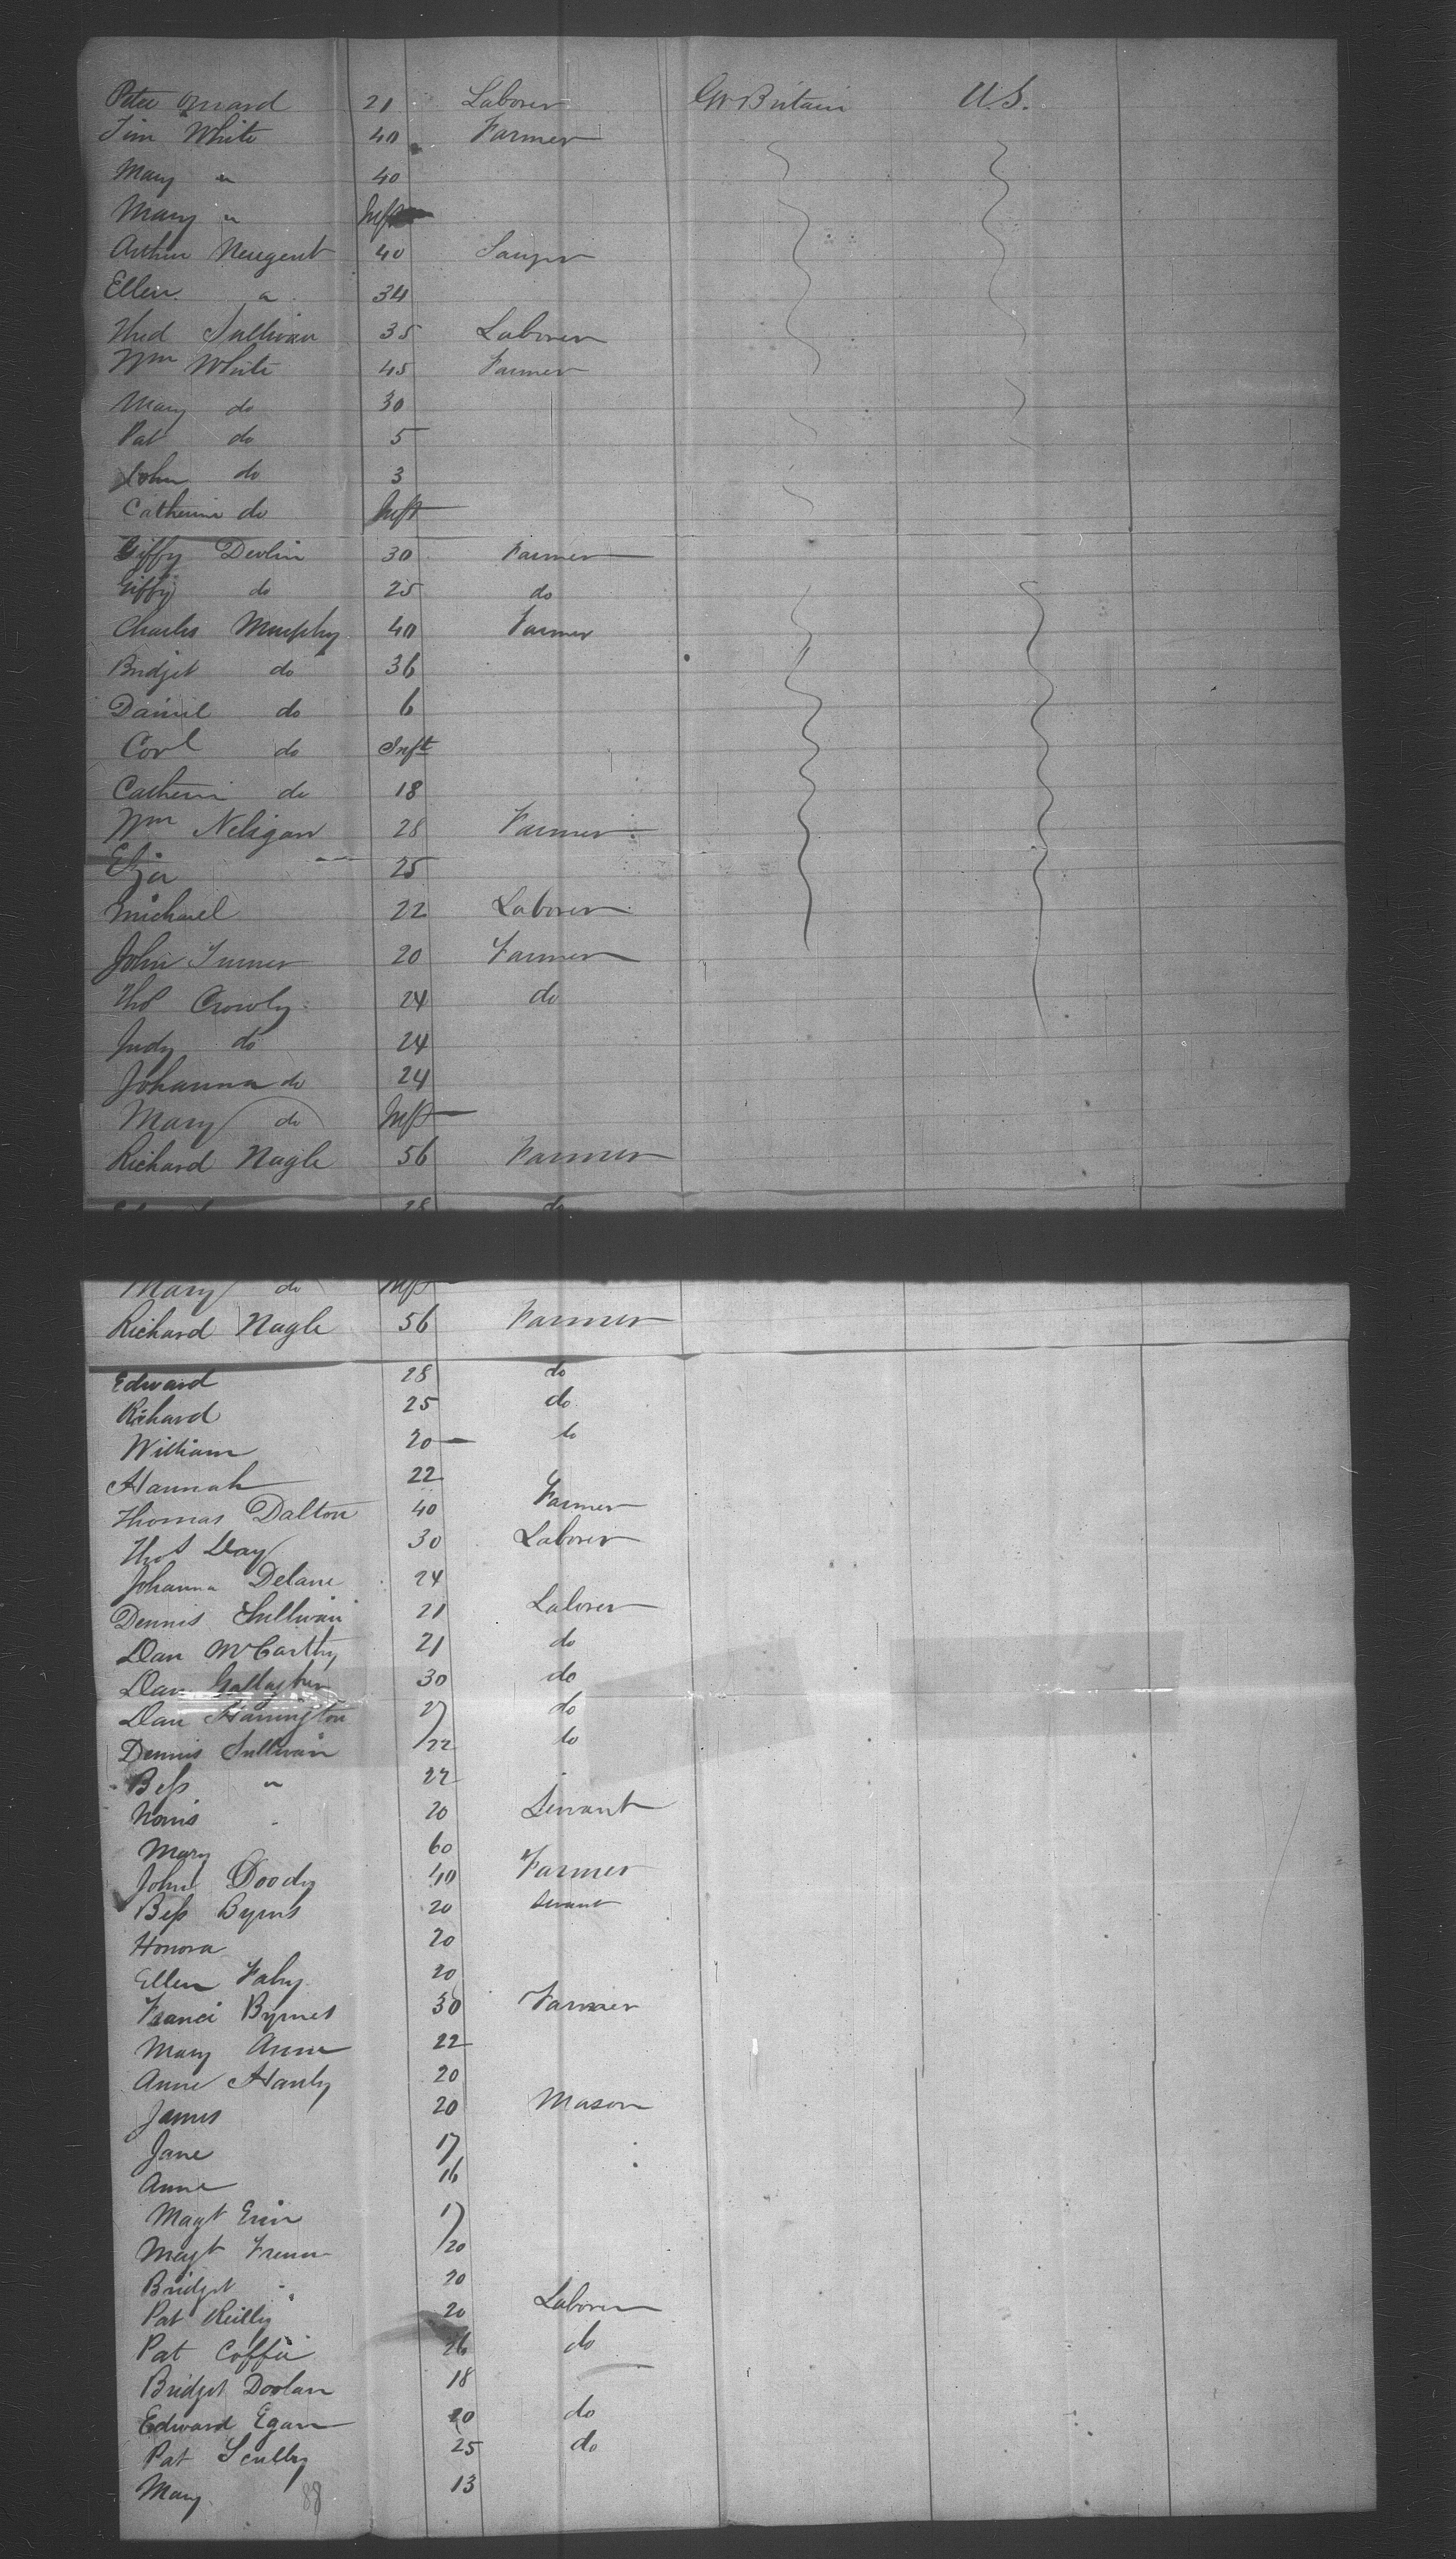 Peter 21 Laborer Gr Britain U.S.
Tim White 40 Farmer
Mary " 40
Mary " Inft
Arthur Neugent 40 Sawyer
Ellen " 34
Thed Sullivan 35 Laborer
Wm White 45 Farmer
Mary do 30
Pat do 5
John do 3
Catherine do Inft
Giffy Devlin 30 Farmer
Giffy do 25 do
Charles Murphy 40 Farmer
Bridget do 36
Daniel do 6
do Inft
Catherin do 18
Wm Neligan 28 Farmer
Eliza 25
Michael 22 Laborer
John Turner 20 Farmer
Thos Crowly 24 do
Judy do 24
Johanna do 24
Mary do Inft
Richard Nagle 56 Farmer
28 do
Mary do Inft
Richard Nagle 56 Farmer
Edward 28 do
Richard 25 do
William 20 do
Hannah 22
Thomas Dalton 40 Farmer
Thos Day 30 Laborer
Johanna Delane 24
Dennis Sullivan 21 Laborer
Dan McCarthy 21 do
Dan Gallagher 30 do
Dan Harrington 27 do
Dennis Sullivan 22 do
Bess " 22
Norris 20 Servant
Mary 60
John Doody 40 Farmer
Bess Byrns 20 Servant
Honora 20
Ellen Fahy 20
Franci Byrnes 30 Farmer
Mary Anne 22
Anne Hanly 20
James 20 Mason
Jane 17
Anne 16
Magt Erin 17
Magt 20
Bridget " 20
Pat Reilly 20 Laborer
Pat Coffie 26 do
Bridget Doolan 18
Edward Egan 20 do
Pat Scully 25 do
Mary 13
88